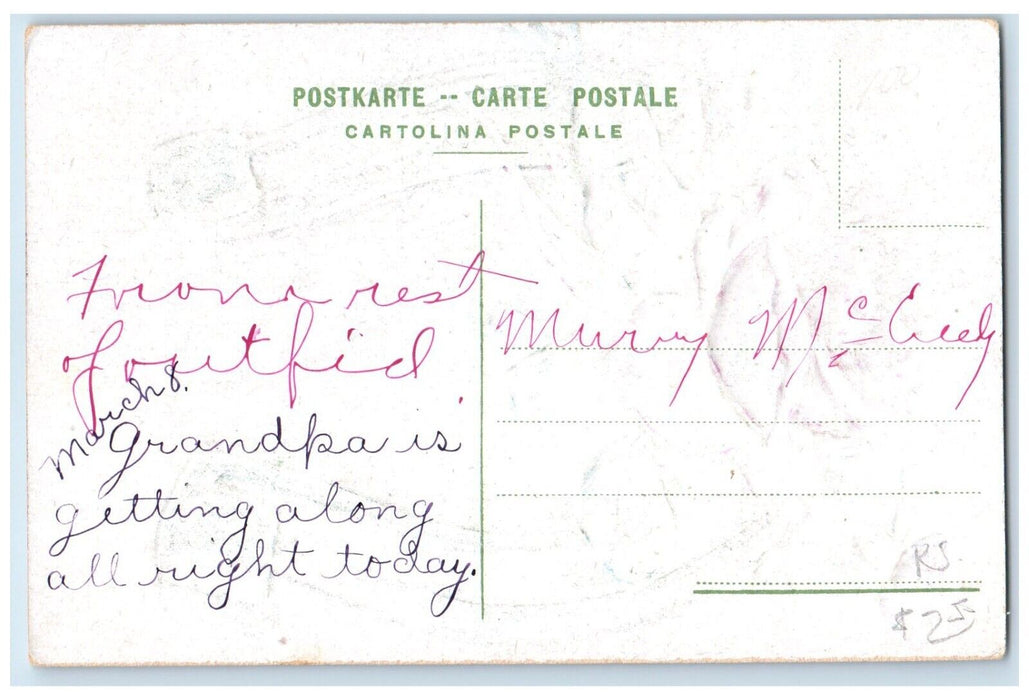 POSTKARTE -- CARTE POSTALE
CARTOLINA POSTALE
From rest
of outfid
March 8.
Grandpa is
getting along
all right today.
Murry Mc
100
RS
$ 25